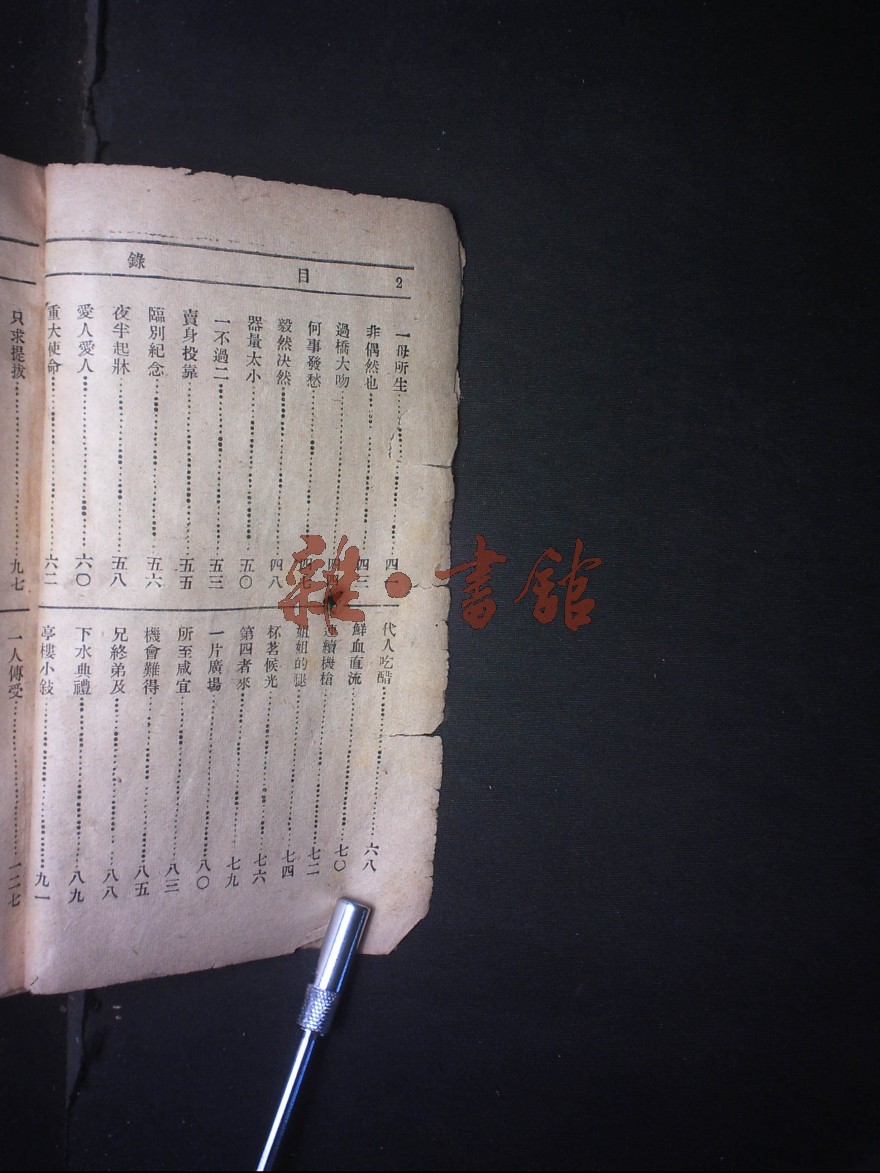 目 錄 2
一母所生 四一
非偶然也 四三
過橋大吻
何事發愁
毅然决然 四八
器量太小 五〇
一不過二 五三
賣身投靠 五五
臨別紀念 五六
夜半起牀 五八
愛人愛人 六〇
重大使命 六二
代人吃醋 六八
鮮血直流 七〇
連續機槍 七二
姐姐的腿 七四
杯茗候光 七六
第四者來 七九
一片廣場 八〇
所至咸宜 八三
機會難得 八五
兄終弟及 八八
下水典禮 八九
亭樓小敍 九一
只求提拔 九七
一人傳受 一二七
雜·書館